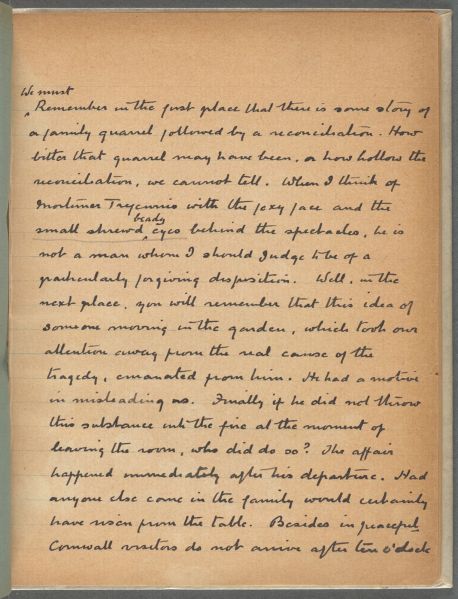 We must
Remember in the first place that there is some story of
a family quarrel followed by a reconciliation. How
bitter that quarrel may have been, or how hollow the
reconciliation, we cannot tell. When I think of
Mortimer Tregennis with the foxy face and the
beady
small shrewd eyes behind the spectacles, he is
not a man whom I should judge to be of a
particularly forgiving disposition. Well, in the
next place, you will remember that this idea of
someone moving in the garden, which took our
attention away from the real cause of the
tragedy, emanated from him. He had a motive
in misleading us. Finally if he did not throw
this substance into the fire at the moment of
leaving the room, who did do so? The affair
happened immediately after his departure. Had
anyone else come in the family would certainly
have risen from the table. Besides in peaceful
Cornwall visitors do not arrive after ten o'clock